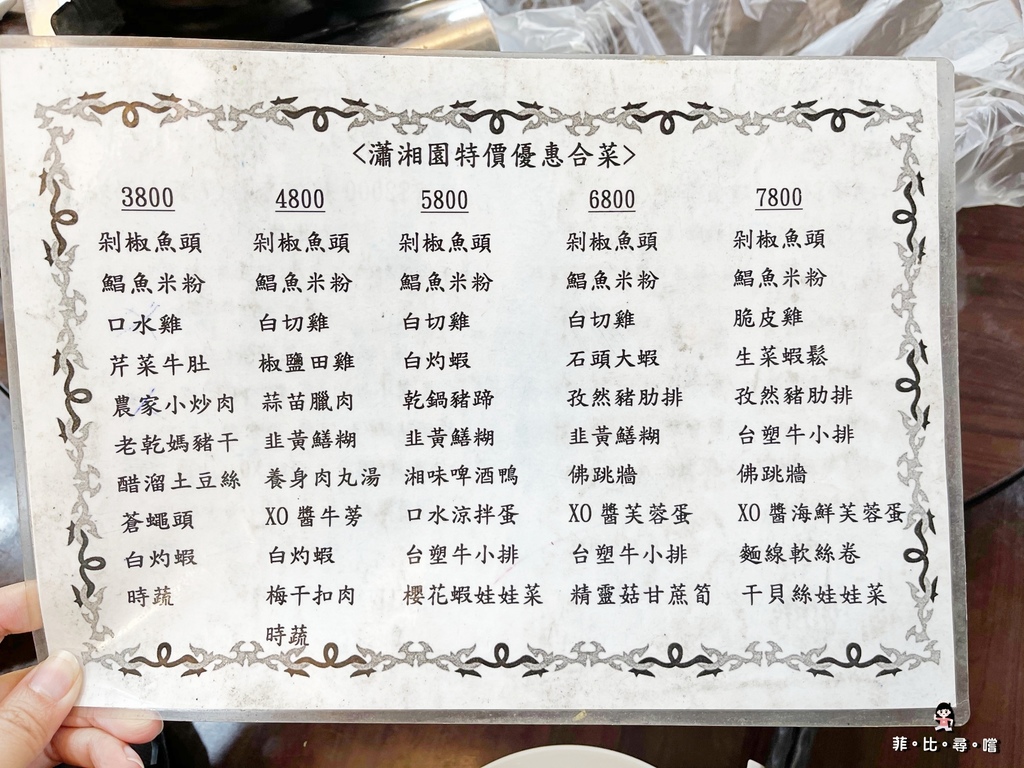 <瀟湘園特價優惠合菜>
3800 4800 5800 6800 7800
剁椒魚頭 剁椒魚頭 剁椒魚頭 剁椒魚頭 剁椒魚頭
鯧魚米粉 鯧魚米粉 鯧魚米粉 鯧魚米粉 鯧魚米粉
口水雞 白切雞 白切雞 白切雞 脆皮雞
芹菜牛肚 椒鹽田雞 白灼蝦 石頭大蝦 生菜蝦鬆
農家小炒肉 蒜苗臘肉 乾鍋豬蹄 孜然豬肋排 孜然豬肋排
老乾媽豬干 韭黃鱔糊 韭黃鱔糊 韭黃鱔糊 台塑牛小排
醋溜土豆絲 養身肉丸湯 湘味啤酒鴨 佛跳牆 佛跳牆
蒼蠅頭 XO醬牛蒡 口水涼拌蛋 XO醬芙蓉蛋 XO醬海鮮芙蓉蛋
白灼蝦 白灼蝦 台塑牛小排 台塑牛小排 麵線軟絲卷
時蔬 梅干扣肉 櫻花蝦娃娃菜 精靈菇甘蔗筍 干貝絲娃娃菜
時蔬
菲。比。尋。嚐